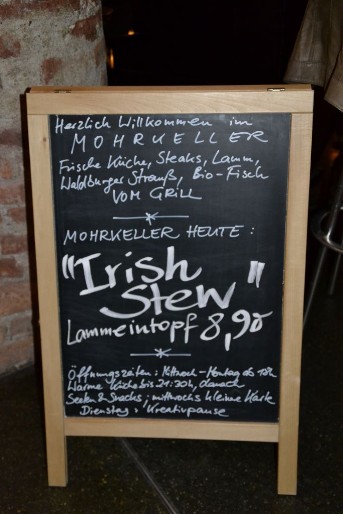 Herzlich Willkommen im
MOHRKELLER
Frische Küche, Steaks, Lamm,
Waldburger Strauß, Bio-Fisch
VOM GRILL
MOHRKELLER HEUTE:
"Irish
Stew"
Lammeintopf 8,90
Öffnungszeiten: Mittwoch - Montag ab 18h
Warme Küche bis 21:30h, danach
Seelen & Snacks; mittwochs kleine Karte
Dienstag: Kreativpause